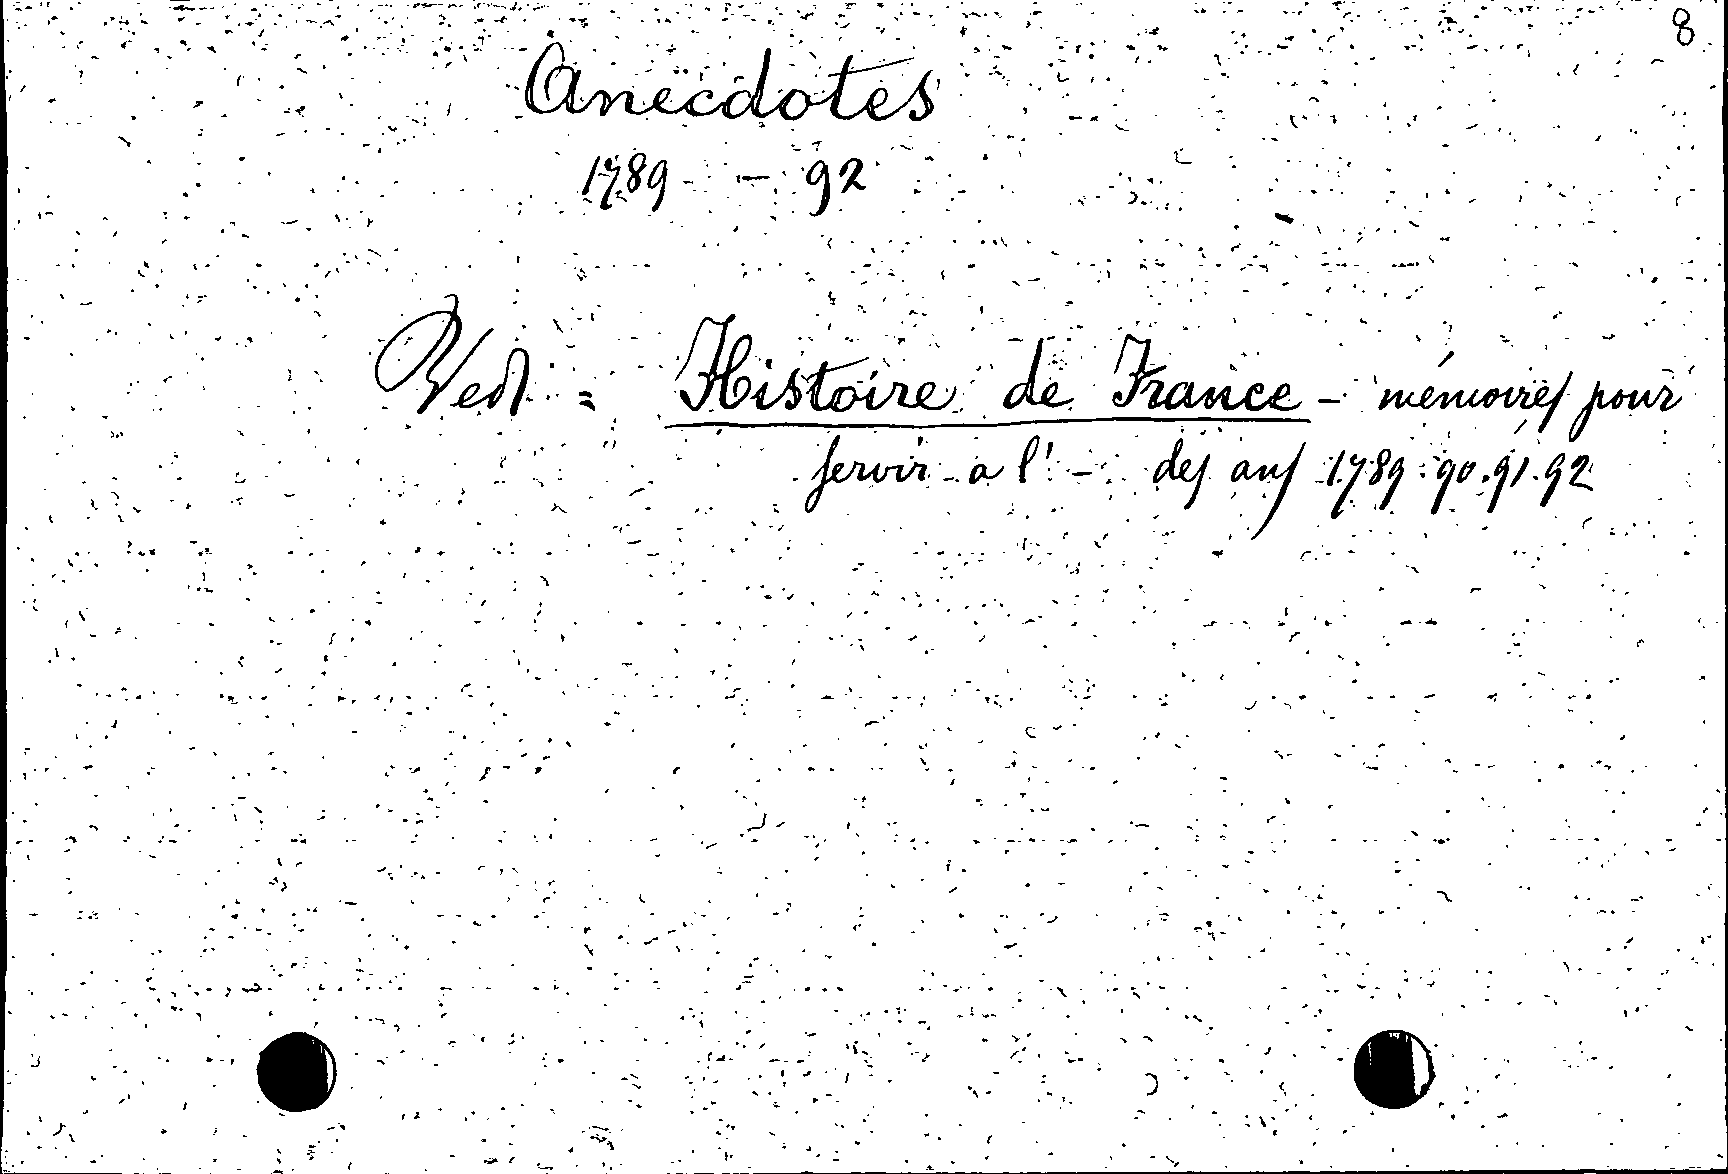 8
Anecdotes
1789 - 92
Ved = Histoire de France - mémoires pour
servir a l' - des ans 1789.90.91.92